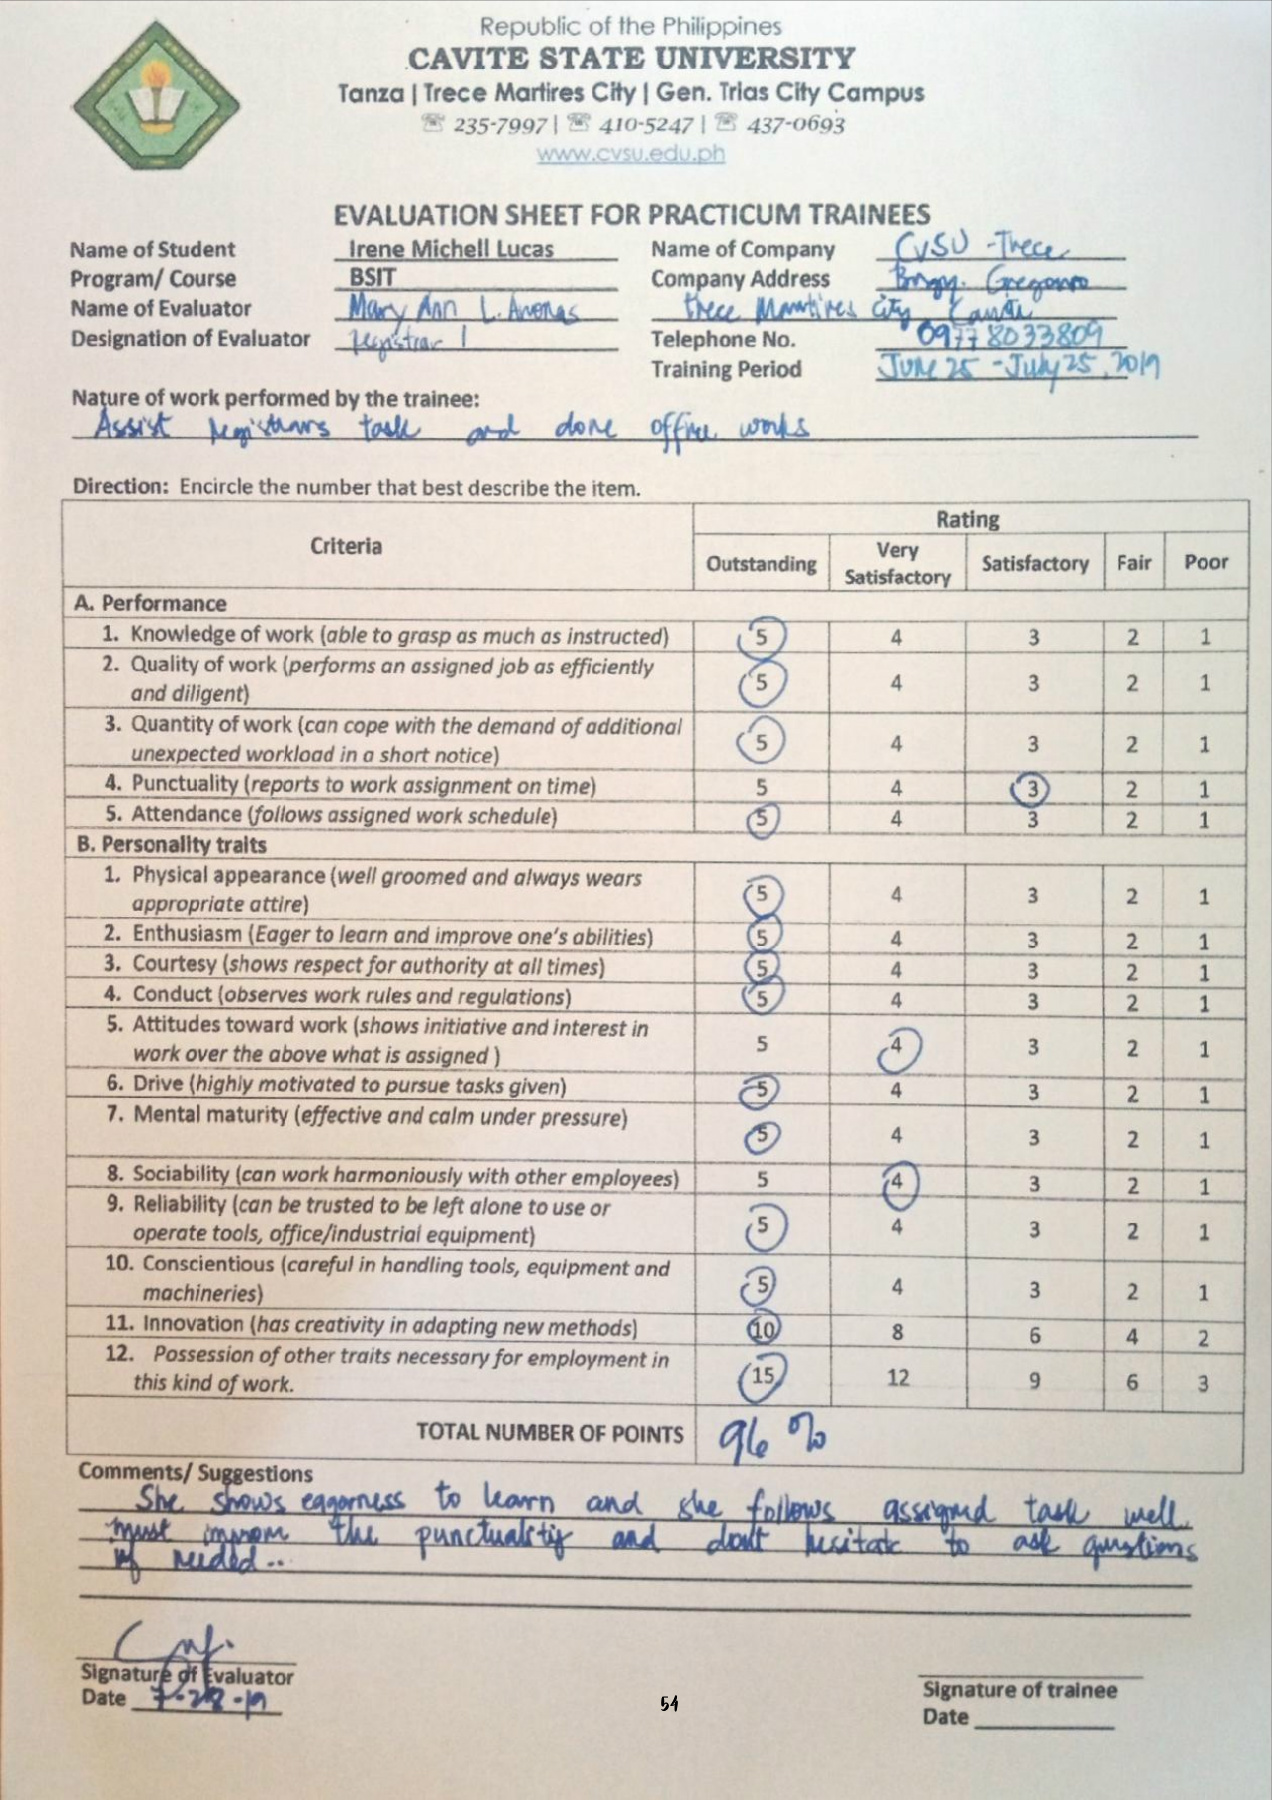 Republic of the Philippines
CAVITE STATE UNIVERSITY
Tanza | Trece Martires City | Gen. Trias City Campus
☏ 235-7997 | ☏ 410-5247 | ☏ 437-0693
www.cvsu.edu.ph
EVALUATION SHEET FOR PRACTICUM TRAINEES
Name of Student Irene Michell Lucas Name of Company CVSU -Trece
Program/ Course BSIT Company Address Brgy. Gregorio
Name of Evaluator Mary Ann L. Trece Martires City Cavite
Designation of Evaluator registrar I Telephone No. 09778033809
Training Period June 25 - July 25, 2019
Nature of work performed by the trainee:
Assist registrars task and done office works
Direction: Encircle the number that best describe the item.
Criteria Rating
Outstanding Very Satisfactory Satisfactory Fair Poor
A. Performance
1. Knowledge of work (able to grasp as much as instructed) 5 4 3 2 1
2. Quality of work (performs an assigned job as efficiently
and diligent) 5 4 3 2 1
3. Quantity of work (can cope with the demand of additional
unexpected workload in a short notice) 5 4 3 2 1
4. Punctuality (reports to work assignment on time) 5 4 3 2 1
5. Attendance (follows assigned work schedule) 5 4 3 2 1
B. Personality traits
1. Physical appearance (well groomed and always wears
appropriate attire) 5 4 3 2 1
2. Enthusiasm (Eager to learn and improve one's abilities) 5 4 3 2 1
3. Courtesy (shows respect for authority at all times) 5 4 3 2 1
4. Conduct (observes work rules and regulations) 5 4 3 2 1
5. Attitudes toward work (shows initiative and interest in
work over the above what is assigned ) 5 4 3 2 1
6. Drive (highly motivated to pursue tasks given) 5 4 3 2 1
7. Mental maturity (effective and calm under pressure) 5 4 3 2 1
8. Sociability (can work harmoniously with other employees) 5 4 3 2 1
9. Reliability (can be trusted to be left alone to use or
operate tools, office/industrial equipment) 5 4 3 2 1
10. Conscientious (careful in handling tools, equipment and
machineries) 5 4 3 2 1
11. Innovation (has creativity in adapting new methods) 10 8 6 4 2
12. Possession of other traits necessary for employment in
this kind of work. 15 12 9 6 3
TOTAL NUMBER OF POINTS 96 %
Comments/ Suggestions
She shows eagerness to learn and she follows assigned task well
must improve the punctuality and dont hesitate to ask questions
if needed..
Signature of Evaluator
Date 7-28-19
54
Signature of trainee
Date